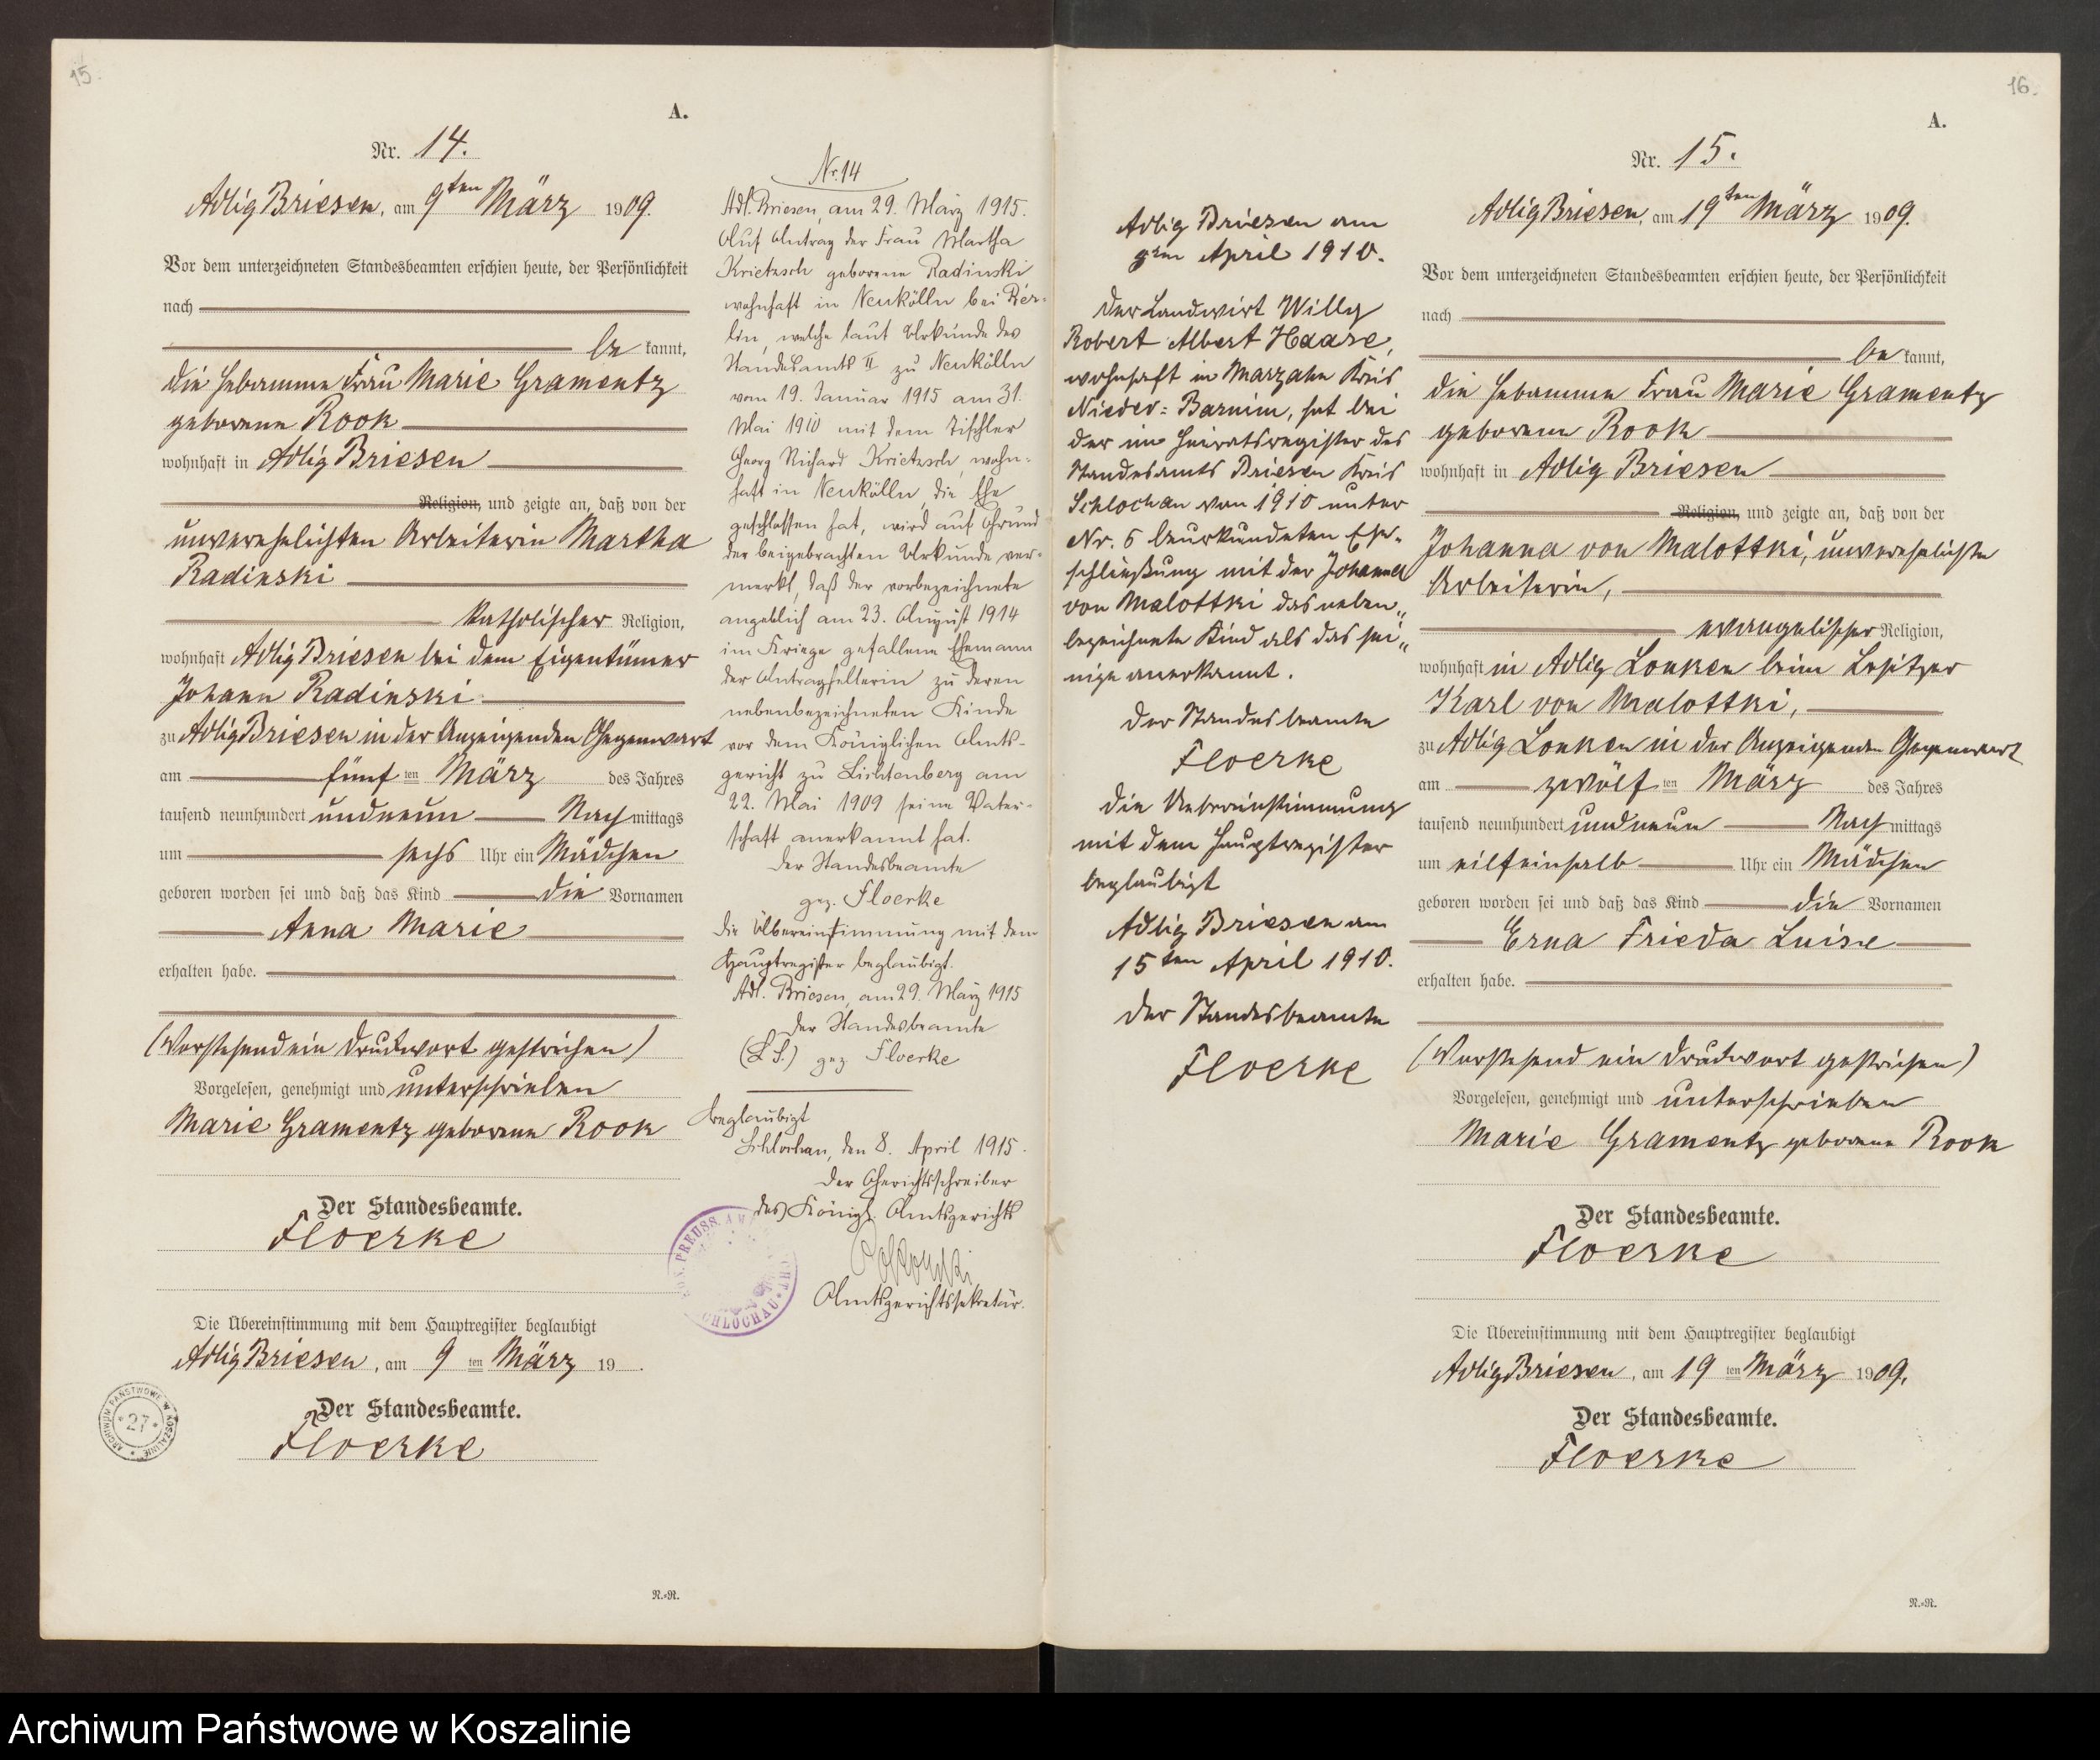 15.
A.
Nr. 14.
Adlig Briesen, am 9ten März 1909.
Vor dem unterzeichneten Standesbeamten erschien heute, der Persönlichkeit
nach
be kannt,
die Hebamme Frau Marie Gramentz
geborene Rook
wohnhaft in Adlig Briesen
Religion, und zeigte an, daß von der
unverehelichten Arbeiterin Martha
Radinski
katholischer Religion,
wohnhaft Adlig Briesen bei dem Eigentümer
Johann Radinski
zu Adlig Briesen in der Anzeigenden Gegenwart
am fünf ten März des Jahres
tausend neunhundert undneun Nach mittags
um sechs Uhr ein Mädchen
geboren worden sei und daß das Kind die Vornamen
Anna Marie
erhalten habe.
(Vorstehend ein Druckwort gestrichen)
Vorgelesen, genehmigt und unterschrieben
Marie Gramentz geborene Rook
Der Standesbeamte.
Floerke
Die Übereinstimmung mit dem Hauptregister beglaubigt
Adlig Briesen, am 9 ten März 19 .
Der Standesbeamte.
Floerke
ARCHIWUM PAŃSTWOWE W KOSZALINIE
* 27 *
R.=R.
Nr. 14
Adl. Briesen, am 29. März 1915.
Auf Antrag der Frau Martha
Krietzsch geborene Radinski
wohnhaft in Neukölln bei Ber=
lin, welche laut Urkunde des
Standesamts II zu Neukölln
vom 19. Januar 1915 am 31.
Mai 1910 mit dem Tischler
Georg Richard Krietzsch, wohn=
haft in Neukölln, die Ehe
geschlossen hat, wird auf Grund
der beigebrachten Urkunde ver=
merkt, daß der vorbezeichnete
angeblich am 23. August 1914
im Kriege gefallene Ehemann
der Antragstellerin zu deren
nebenbezeichneten Kinde
vor dem Königlichen Amts=
gericht zu Lichtenberg am
22. Mai 1909 seine Vater=
schaft anerkannt hat.
Der Standesbeamte
gez. Floerke
Die Übereinstimmung mit dem
Hauptregister beglaubigt.
Adl. Briesen, am 29. März 1915
Der Standesbeamte
(L. S.) gez Floerke
Beglaubigt
Schlochau, den 8. April 1915.
Der Gerichtsschreiber
des Königl. Amtsgerichts
Amtsgerichtssekretär.
16.
A.
Adlig Briesen am
9ten April 1910.
Der Landwirt Willy
Robert Albert Haase,
wohnhaft in Marzahn Kreis
Nieder=Barnim, hat bei
der im Heiratsregister des
Standesamts Briesen Kreis
Schlochau von 1910 unter
Nr. 6 beurkundeten Ehe=
schließung mit der Johanna
von Malottki das neben„
bezeichnete Kind als das sei„
nige anerkannt.
Der Standesbeamte
Floerke
Die Uebereinstimmung
mit dem Hauptregister
beglaubigt
Adlig Briesen am
15ten April 1910.
Der Standesbeamte
Floerke
Nr. 15.
Adlig Briesen, am 19ten März 1909.
Vor dem unterzeichneten Standesbeamten erschien heute, der Persönlichkeit
nach
be kannt,
die Hebamme Frau Marie Gramentz
geborene Rook
wohnhaft in Adlig Briesen
Religion, und zeigte an, daß von der
Johanna von Malottki, unverehelichte
Arbeiterin,
evangelischer Religion,
wohnhaft in Adlig Lonken beim Besitzer
Karl von Malottki,
zu Adlig Lonken in der Anzeigenden Gegenwart
am zwölf ten März des Jahres
tausend neunhundert undneun Nach mittags
um eilfeinhalb Uhr ein Mädchen
geboren worden sei und daß das Kind die Vornamen
Erna Frieda Luise
erhalten habe.
(Vorstehend ein Druckwort gestrichen)
Vorgelesen, genehmigt und unterschrieben
Marie Gramentz geborene Rook
Der Standesbeamte.
Floerke
Die Übereinstimmung mit dem Hauptregister beglaubigt
Adlig Briesen, am 19 ten März 1909.
Der Standesbeamte.
Floerke
R.=R.
Archiwum Państwowe w Koszalinie